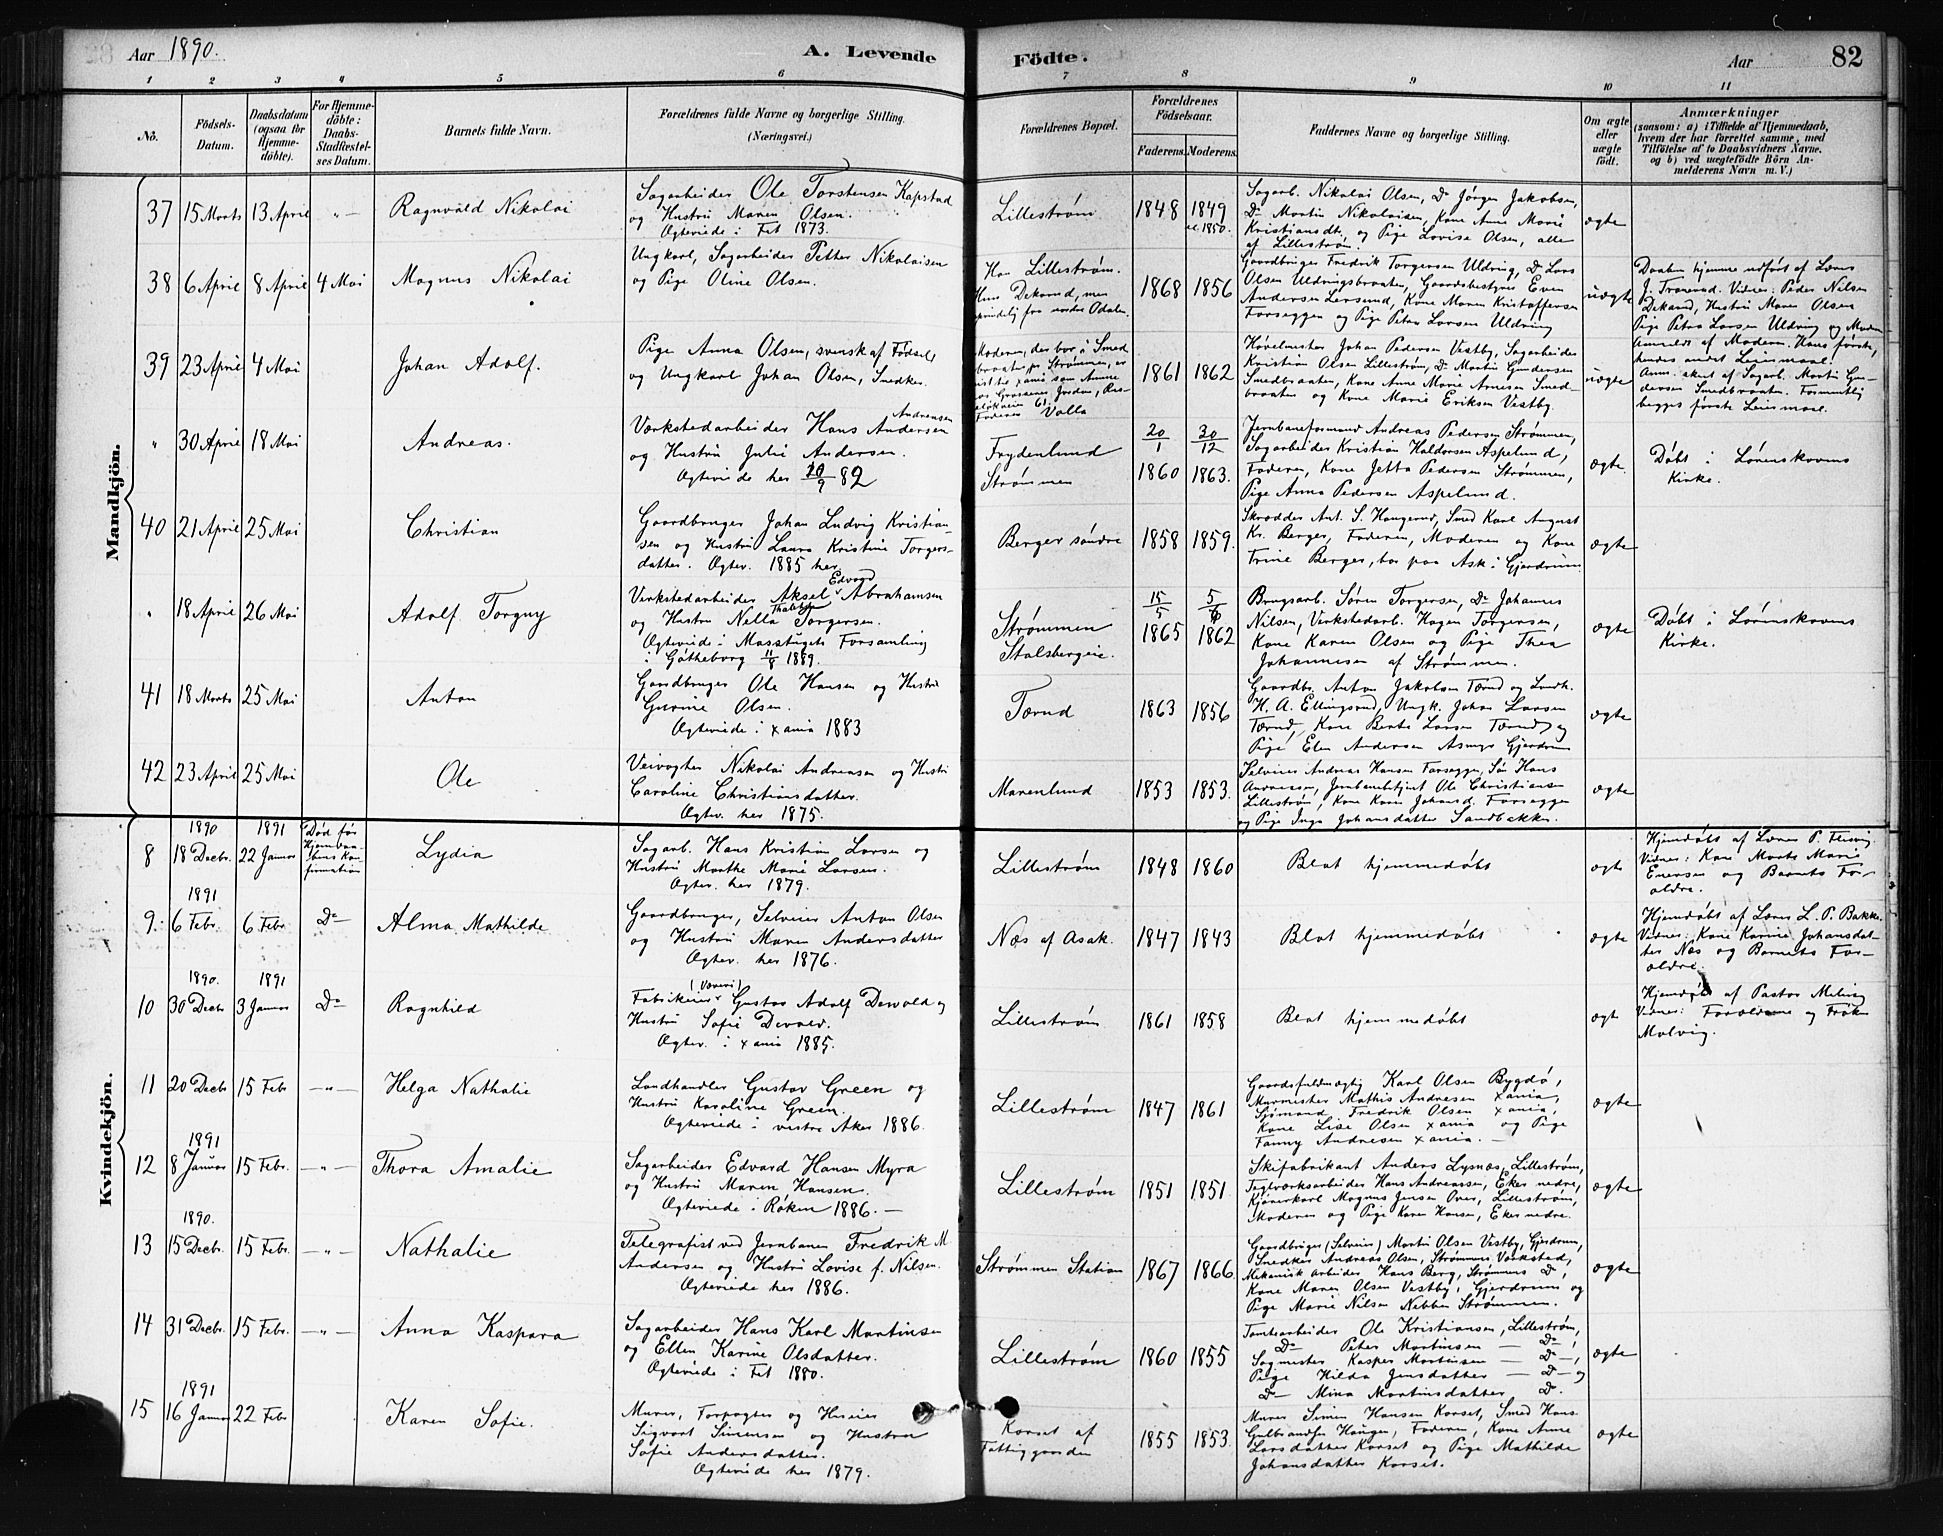 Aar 1890. A. Levende Fødte. Aar 82
1 2 3 4 5 6 7 8 9 10 11
No.
Fødsels-Datum.
Daabsdatum (ogsaa for Hjemme-døbte).
For Hjemme-døbte: Daabs-Stadfæstel-ses Datum.
Barnets fulde Navn.
Forældrenes fulde Navne og borgerlige Stilling. (Næringsvei.)
Forældrenes Bopæl.
Forældrenes Fødselsaar.
Faderens. Moderens.
Faddernes Navne og borgerlige Stilling.
Om ægte eller uægte født.
Anmærkninger
(saasom: a) i Tilfælde af Hjemmedaab,
hvem der har forrettet samme, med
Tilføielse af to Daabsvidners Navne,
og b) ved uægtefødte Børn An-
melderens Navn m. V.)
Mandkjøn.
37 15 Marts 13 April -"- Ragnvald Nikolai
Sagarbeider Ole Torstensen Kapstad
og Hustru Maren Olsen.
Ægteviede i Fet 1873.
Lillestrøm 1848 1849 ell. 1850.
Sagarb. Nikolai Olsen, Do Jørgen Jakobsen,
Do Martin Nikolaisen, Kone Anne Marie
Kristiansdt. og Pige Lovise Olsen, alle
af Lillestrøm.
ægte
38 6 April 8 April 4 Mai Magnus Nikolai
Ungkarl, Sagarbeider Petter Nikolaisen
og Pige Oline Olsen.
Han Lillestrøm.
Hun Dekarud, men
oprindelig fra nordre Odalen.
1868 1856
Gaardbruger Fredrik Torgersen Uldring, Do Lars
Olsen Uldringsbraaten, Gaardsbestyrer Even
Andersen Lersund, Kone Maren Kristoffersen
Farseggen og Pige Petra Larsen Uldring
uægte
Daaben hjemme udført af Lærer
J. Tranerud. Vidner: Peder Nilsen
Dekarud, Hustru Maren Olsen
Pige Petra Larsen Uldring og Moderen
Anmeldt af Moderen. Hans første,
hendes andet Leiermaal.
39 23 April 4 Mai Johan Adolf.
Pige Anna Olsen, svensk af Fødsel
og Ungkarl Johan Olsen, Snedker.
Moderen, der bor i Smed
braaten pr Strømmen, er
Faderen Valla
1861 1862
Høvelmester Johan Pedersen Vestby, Sagarbeider
Kristian Olsen Lillestrøm, Do Martin Gundersen
Smedbraaten, Kone Anne Marie Arnesen Smed-
braaten og Kone Marie Eriksen Vestby.
uægte
Anm. skeet af Sagarb. Martin Gun-
dersen Smedbraaten. Formentlig
begges første Leiermaal.
" 30 April 18 Mai Andreas.
Andreasen
Værkstedarbeider Hans Andersen
og Hustru Julie Andersen.
Ægteviede her 10/9 82
Frydenlund
Strømmen
20/1 1860 30/12 1863.
Jernbaneformand Andreas Pedersen Strømmen,
Sagarbeider Kristian Haldorsen Aspelund,
Faderen, Kone Jetta Pedersen Strømmen,
Pige Anna Pedersen Aspelund.
ægte.
Døbt i Lørenskovens
Kirke.
40 21 April 25 Mai Christian
Gaardbruger Johan Ludvig Kristian-
sen og Hustru Laura Kristine Torgers-
datter. Ægtev. 1885 her
Berger søndre 1858 1859.
Skrædder Ant. S. Haugerud, Smed Karl August
Kr. Berger, Faderen, Moderen og Kone
Trine Berger, bor paa Ask i Gjerdrum
ægte
" 18 April 26 Mai Adolf Torgny
Edvard
Verkstedarbeider Aksel Abrahamsen
og Hustru Nella Torgersen.
Ægteviede i Masstugets Forsamling
i Gøtheborg 11/8 1889.
Strømmen
Stalsbergeie.
15/5 1865 5/6 1862
Brugsarb. Søren Torgersen, Do Johannes
Nilsen, Verkstedarb. Hagen Torgersen,
Kone Karen Olsen og Pige Thea
Johannesen af Strømmen.
ægte
Døbt i Lørenskovens
Kirke.
41 18 Marts 25 Mai Anton
Gaardbruger Ole Hansen og Hustru
Gurine Olsen.
Ægteviede i Xania 1883
Tærud 1863 1856
Gaardbr. Anton Jakobsen Tærud og Landh.
H. A. Ellingsrud, Ungk. Johan Larsen
Tærud, Kone Berte Larsen Tærud og
Pige Elen Andersen Asmyr Gjerdrum
ægte
42 23 April 25 Mai Ole
Veivogter Nikolai Andreasen og Hustru
Caroline Christiansdatter.
Ægtev. her 1875.
Marenlund 1853 1853.
Selveier Andreas Hansen Farseggen, Søn Hans
Andreasen, Jernbanebetjent Ole Christiansen
Lillestrøm, Kone Karen Johansd. Farseggen
og Pige Inga Johansdatter Sandbakken.
ægte
Kvindekjøn.
8 1890 18 Decbr. 1891 22 Januar Død før Hjemmedaabens Konfirmation Lydia
Sagarb. Hans Kristian Larsen og
Hustru Marthe Marie Larsen.
Ægtev. her 1879.
Lillestrøm 1848 1860 Blot hjemmedøbt ægte
Hjemdøbt af Lærer P. Flesvig.
Vidner: Kone Marte Marie
Enersen og Barnets For-
ældre.
9. 1891 6 Febr. 6 Febr Do Alma Mathilde
Gaardbruger, Selveier Anton Olsen
og Hustru Maren Andersdatter
Ægtev. her 1876.
Næs af Asak. 1847 1843 Blot hjemmedøbt ægte
Hjemdøbt af Lærer L. P. Bakke.
Vidner: Kone Karine Johansdat-
ter Næs og Barnets For-
ældre.
10 1890. 30 Decbr 1891 3 Januar Do Ragnhild
(Væveri)
Fabrikeier Gustav Adolf Dewald og
Hustru Sofie Dewald.
Ægtev. i Xania 1885.
Lillestrøm 1861 1858 Blot hjemmedøbt ægt
Hjemdøbt af Pastor
Vidner: Forældrene og Frøken
Malvig.
11 20 Decbr 15 Febr -"- Helga Nathalie
Landhandler Gustav Green og
Hustru Karoline Green.
Ægteviede i vestre Aker 1886.
Lillestrøm 1847 1861
Gaardsfuldmægtig Karl Olsen Bygdø,
Murmester Mathis Andresen Xania,
Sjømand Fredrik Olsen Xania,
Kone Lise Olsen Xania og Pige
Fanny Andresen Xania. -
ægte
12 1891 8 Januar 15 Febr. -"- Thora Amalie
Sagarbeider Edvard Hansen Myra
og Hustru Maren Hansen.
Ægteviede i Røken 1886. -
Lillestrøm 1851 1851.
Skifabrikant Anders Lysnæs, Lillestrøm,
Teglværksarbeider Hans Andreassen, Eker nedre,
Kjørerkarl Magnus Jensen Over, Lillestrøm,
Moderen og Pige Karen Hansen, Eker nedre.
ægte
13 1890. 15 Decbr. 15 Febr. -"- Nathalie
Telegrafist ved Jernbanen Fredrik M
Andersen og Hustru Lovise f. Nilsen.
Ægteviede her 1886.
Strømmen Station 1867 1866.
Gaardbruger (Selveier) Martin Olsen Vestby, Gjerdrum,
Snedker Andreas Olsen, Strømmens Værksted,
Mekanisk arbeider Hans Berg, Strømmens Do,
Kone Maren Olsen Vestby, Gjerdrum og
Pige Marie Nilsen Nebben Strømmen.
ægte
14 31 Decbr. 15 Febr. -"- Anna Kaspara
Sagarbeider Hans Karl Martinsen
og Ellen Karine Olsdatter.
Ægteviede i Fet 1880.
Lillestrøm 1860 1855
Tomtearbeider Ole Kristiansen, Lillestrøm,
Do Peter Martinsen - Do -,
Sagmester Kasper Martinsen - Do -,
Pige Hilda Jensdatter - Do - og
Do - Mina Martinsdatter Do.
ægte
15 1891 16 Januar 22 Febr Karen Sofie.
Murer, Forpagter og Huseier
Sigvart Simensen og Hustru
Sofie Andersdatter.
Ægteviede her 1879.
Korset af
Fattiggaarden
1855 1853.
Murer Simen Hansen Korset, Smed Hans
Gulbrandsen Haugen, Faderen, Kone Anne
Larsdatter Korset og Pige Mathilde
Johansdatter Korset.
ægte